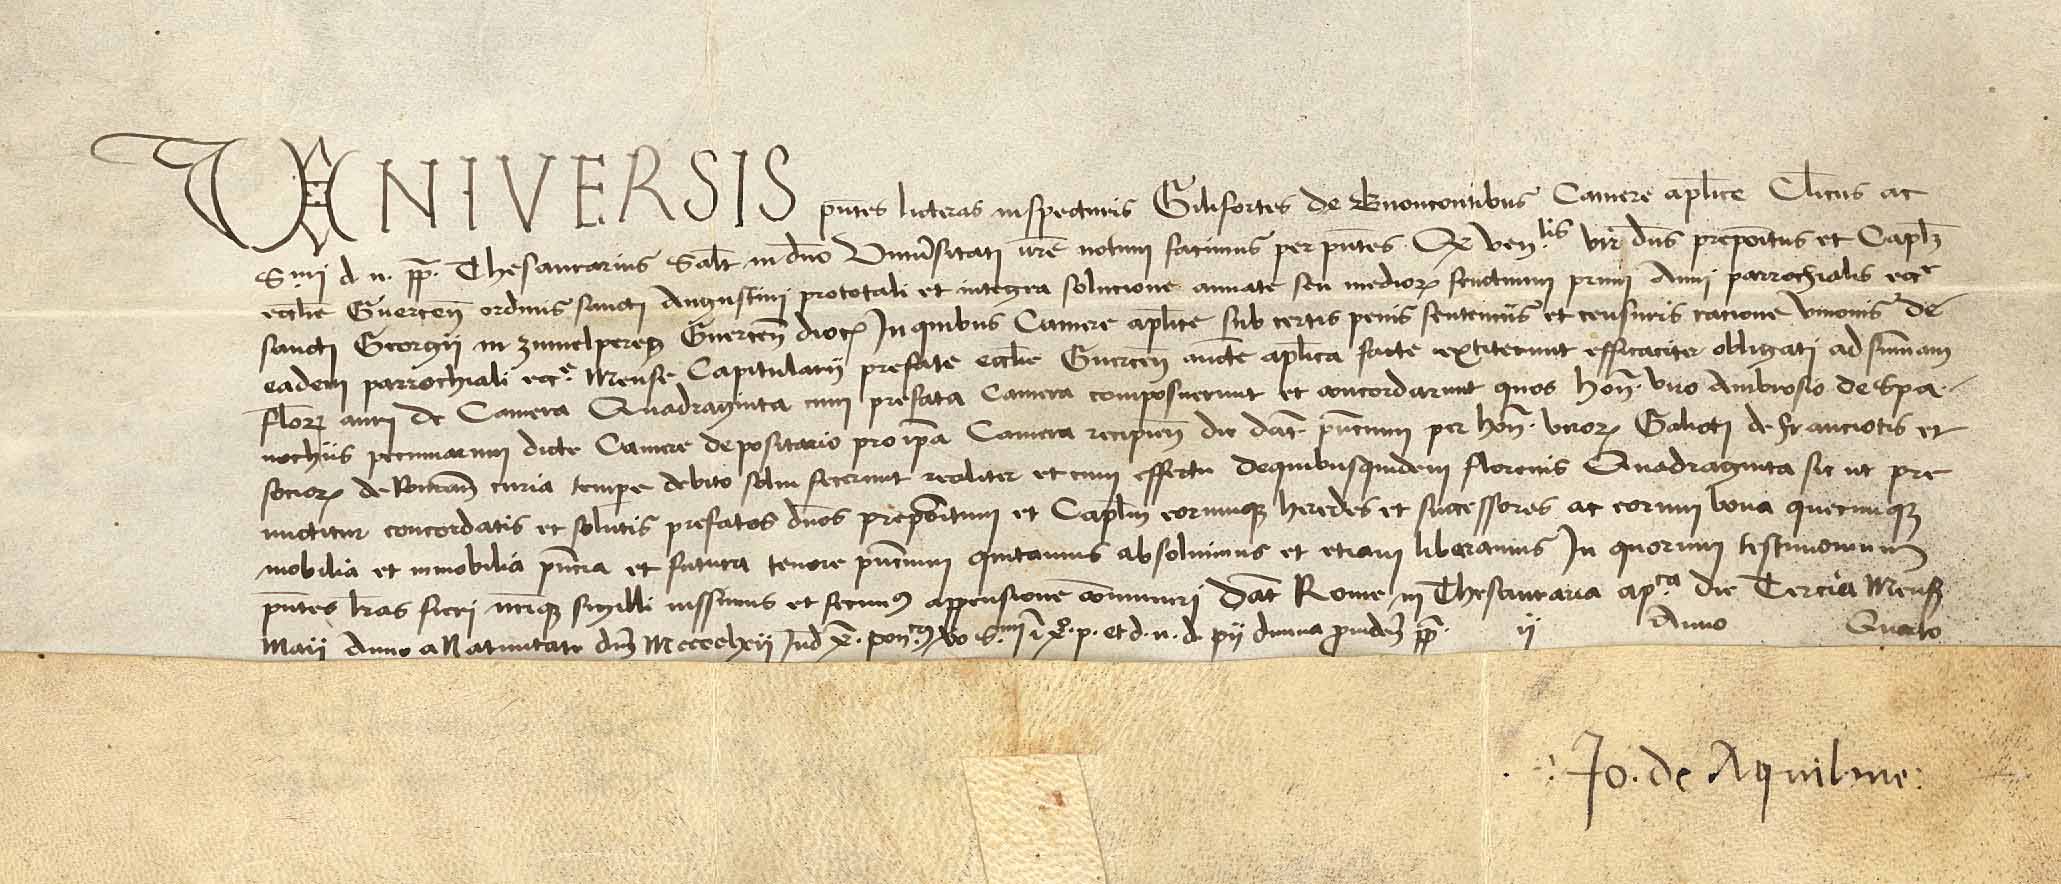 UNIVERSIS pntes licteras inspecturis Gilifortes de Buoncontibus Camere aplice Clicus ac
S.mi d. n. pp. Thesaurarius Salt in dno Universitati vre notum facimus per pntes. Q ven.lis vir dns prepoitus et Caplm
ecclie Gurcen ordinis sancti Augustini pro totali et integra solucione annate seu medior fructuum primi Anni parrochialis ecce
sancti Georgii in Gurcen dioc In quibus Camere aplice sub certis penis sentenciis et censuris ratione Unionis de
eadem parrochiali ecce Mense Capitularii prefate ecclie Gurcen aucte aplica facte extiterunt efficaciter obligati ad summam
flor auri de Camera Quadraginta cum prefata Camera composuerunt et concordarunt quos hon. viro Ambrosio de Spa-
nochiis pecuniarum dicte Camere depositario pro ipa Camera recipien die dat pntium per hon. viror Galioti de franciotis et
socior de Roman curia tempe debito solvi fecerunt realiter et cum effectu de quibusquidem florenis Quadraginta sic ut pre
mictitur concordatis et solutis prefatos dnos prepoitum et Caplm eorumque heredes et successores ac eorum bona quecumque
mobilia et inmobilia pntia et futura tenore pntium quitamus absolvimus et etiam liberamus In quorum testimonium
pntes lras fieri nrique sigilli iussimus et fecimus appensione comuniri Dat Rome in Thesauraria ap.ca die Tercia Mens
Maii Anno a Nativitate dni Mcccclxii Ind X. pon.tus vo S.mi i x. p. et d. n. d. pii divina providen pp. ii Anno Quarto
Jo. de Aquilone